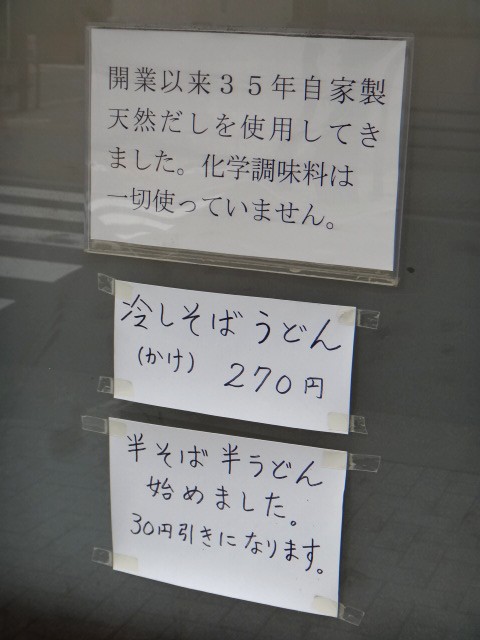 開業以来３５年自家製
天然だしを使用してき
ました。化学調味料は
一切使っていません。
冷しそばうどん
(かけ) 270円
半そば半うどん
始めました。
30円引きになります。